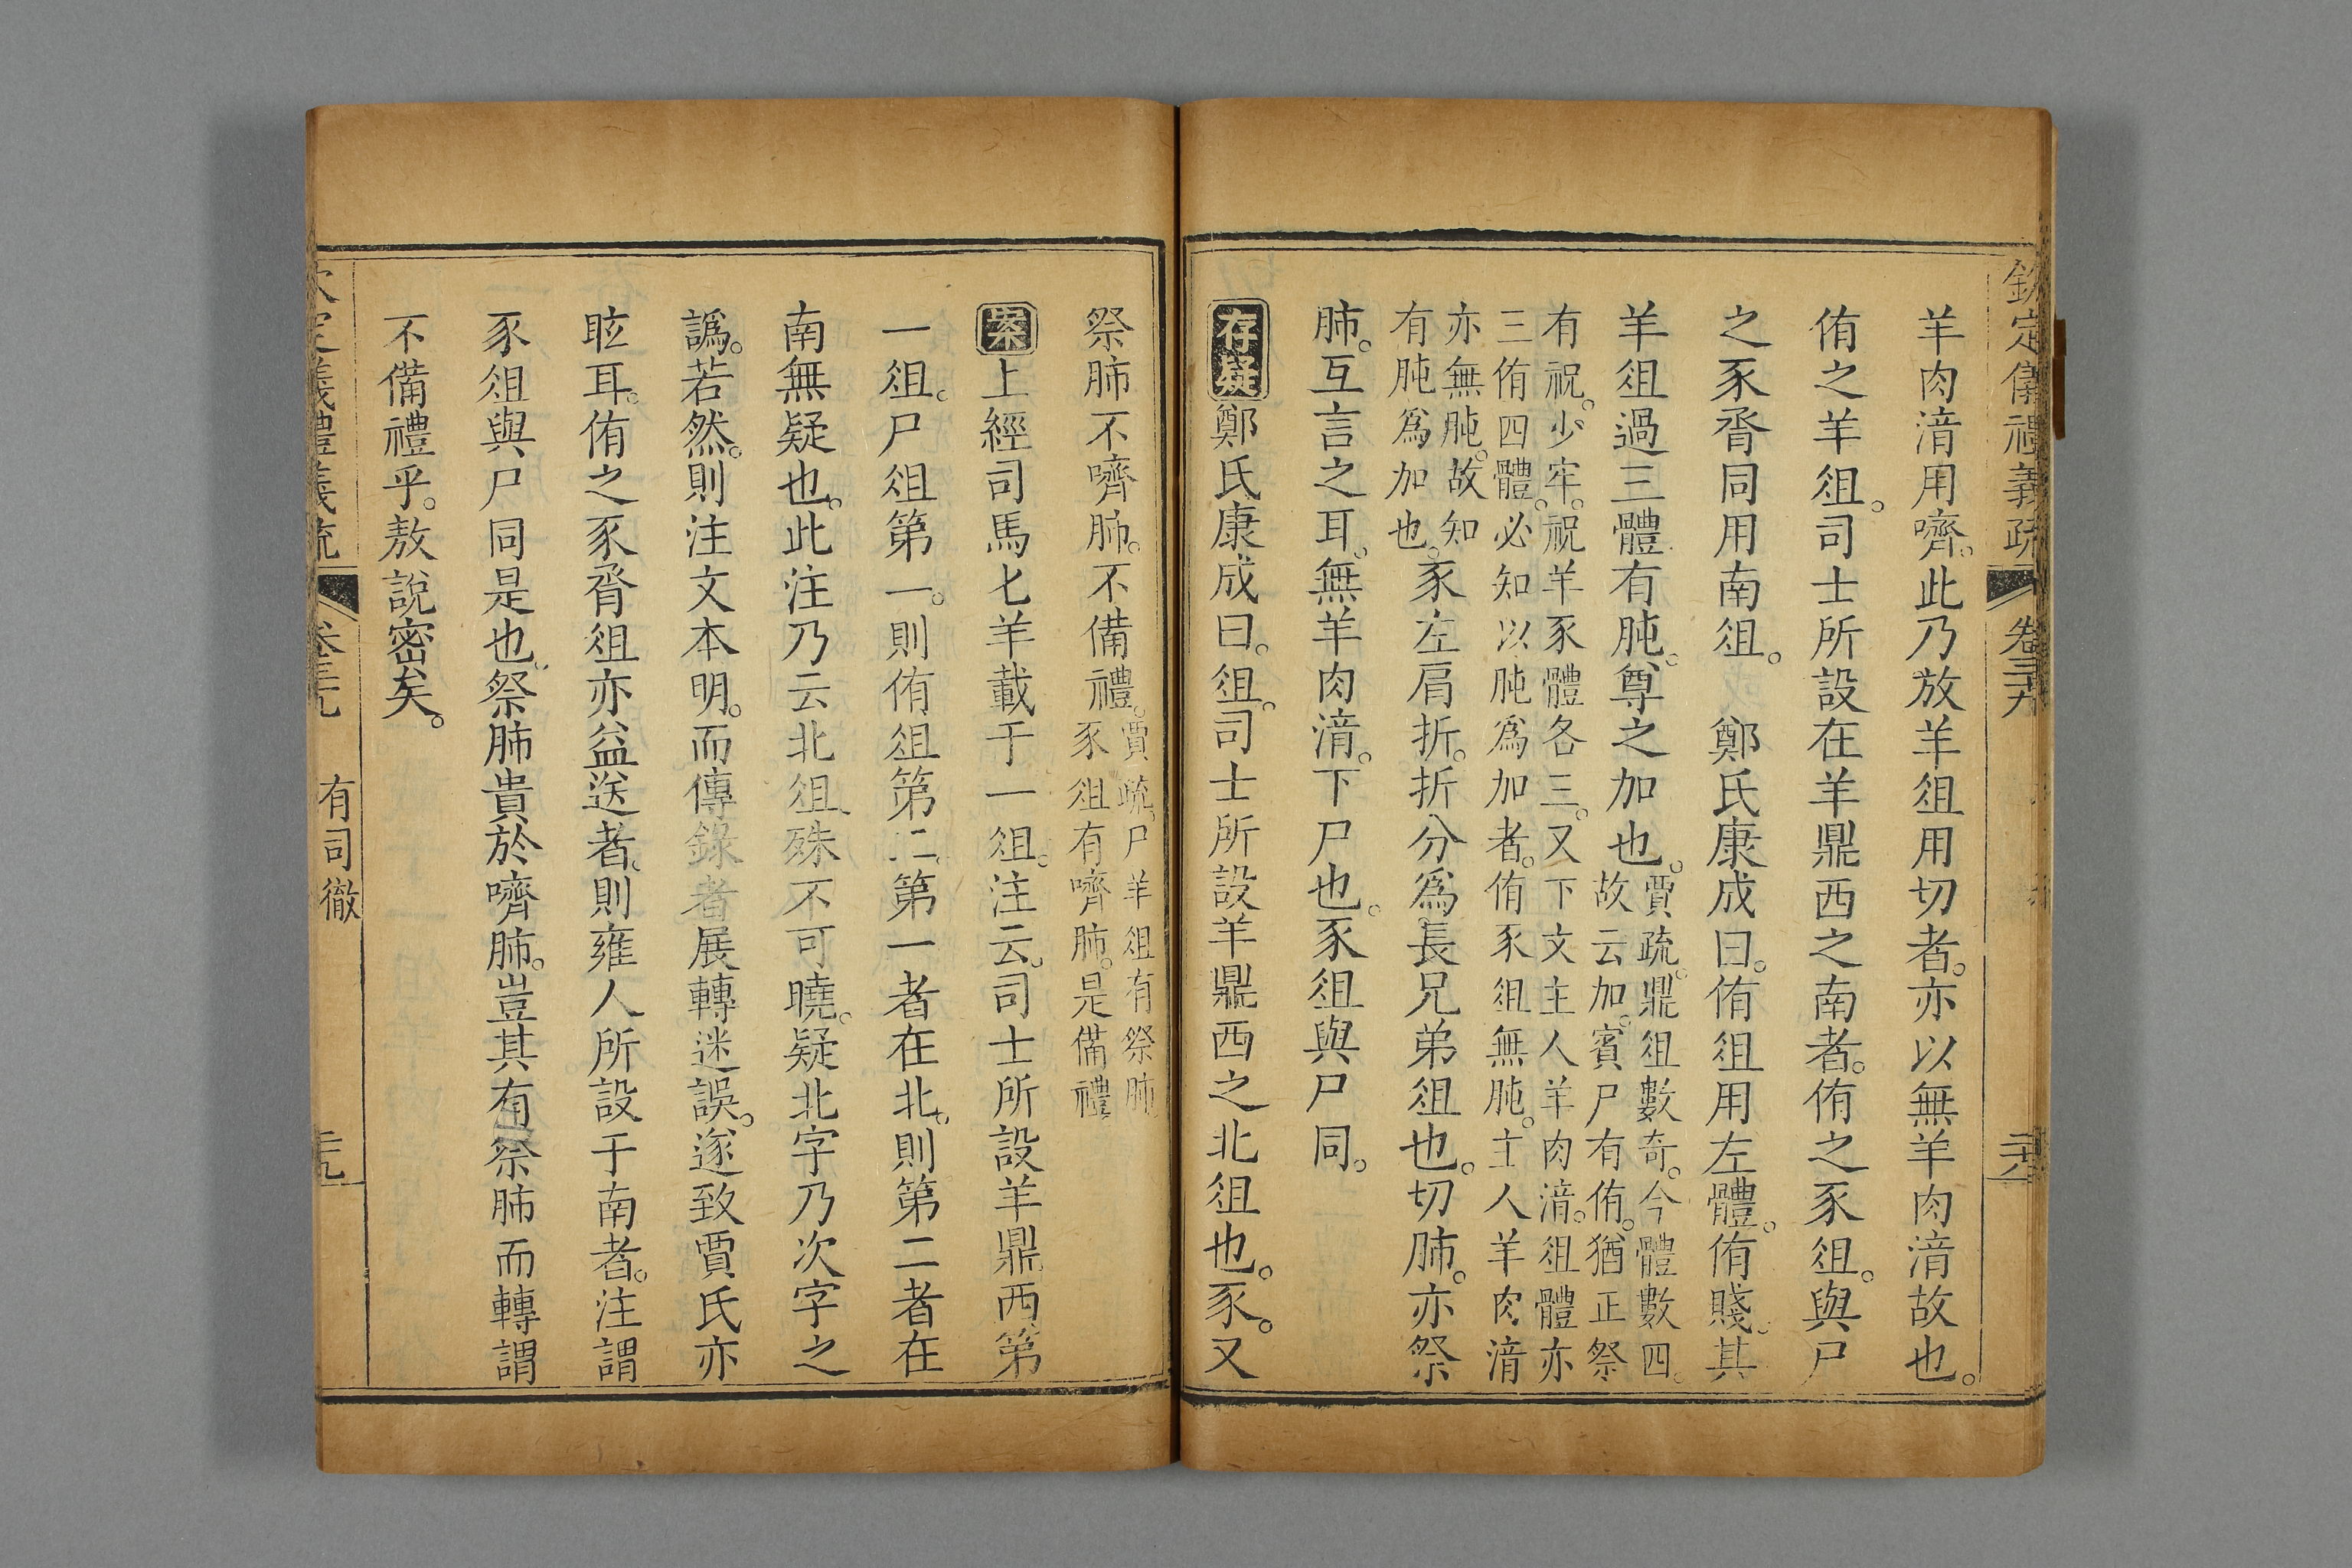 欽定儀禮義疏 卷三十九
羊肉湇用嚌。此乃放羊俎用切者。亦以無羊肉湇故也。
侑之羊俎。司士所設在羊鼎西之南者。侑之豕俎。與尸
之豕脀同用南俎。 鄭氏康成曰。侑俎用左體。侑賤。其
羊俎過三體有肫。尊之加也。賈疏。鼎俎數奇。今體數四。
故云加。賓尸有侑。猶正祭
有祝。少牢。祝羊豕體各三。又下文主人羊肉湇。俎體亦
三侑四體。必知以肫爲加者。侑豕俎無肫。主人羊肉湇
亦無肫。故知
有肫爲加也。豕左肩折。折分爲長兄弟俎也。切肺。亦祭
肺。互言之耳。無羊肉湇。下尸也。豕俎與尸同。
存疑 鄭氏康成曰。俎。司士所設羊鼎西之北俎也。豕。又
祭肺不嚌肺。不備禮。賈疏。尸羊俎有祭肺
豕俎有嚌肺。是備禮
案 上經司馬匕羊載于一俎。注云。司士所設羊鼎西第
一俎。尸俎第一。則侑俎第二。第一者在北。則第二者在
南無疑也。此注乃云北俎。殊不可曉。疑北字乃次字之
譌。若然。則注文本明。而傳錄者展轉迷誤。遂致賈氏亦
眩耳。侑之豕脀俎亦益送者。則雍人所設于南者。注謂
豕俎與尸同是也。祭肺貴於嚌肺。豈其有祭肺而轉謂
不備禮乎。敖說密矣。
義禮義疏 有司徹